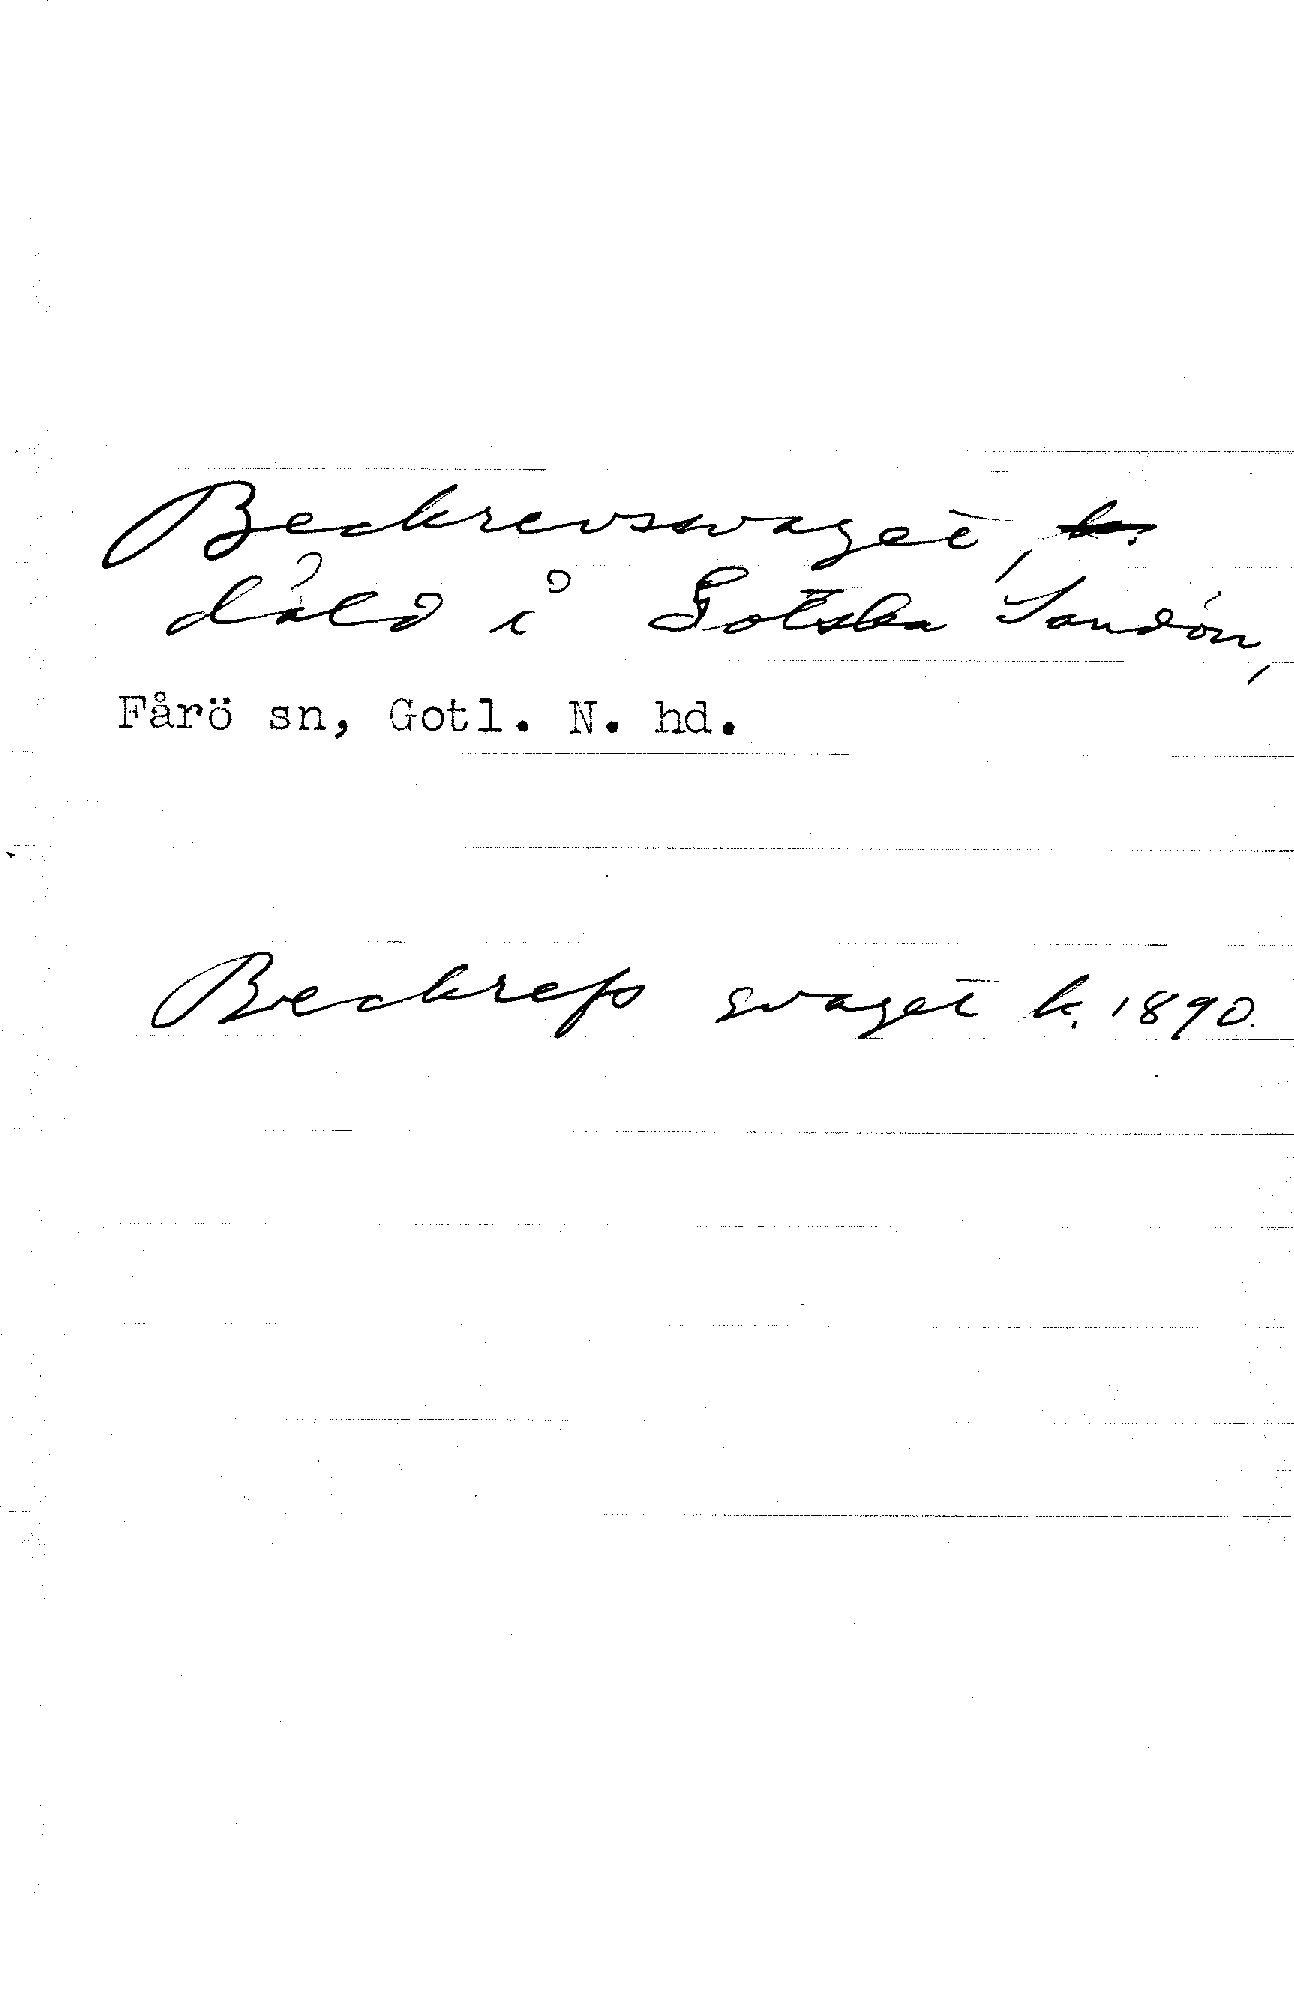 Beckrevssvaget, k.
dåld i Gotska Sandön,
Fårö sn, Gotl. N. hd.
Beckrefs svaget k. 1890.